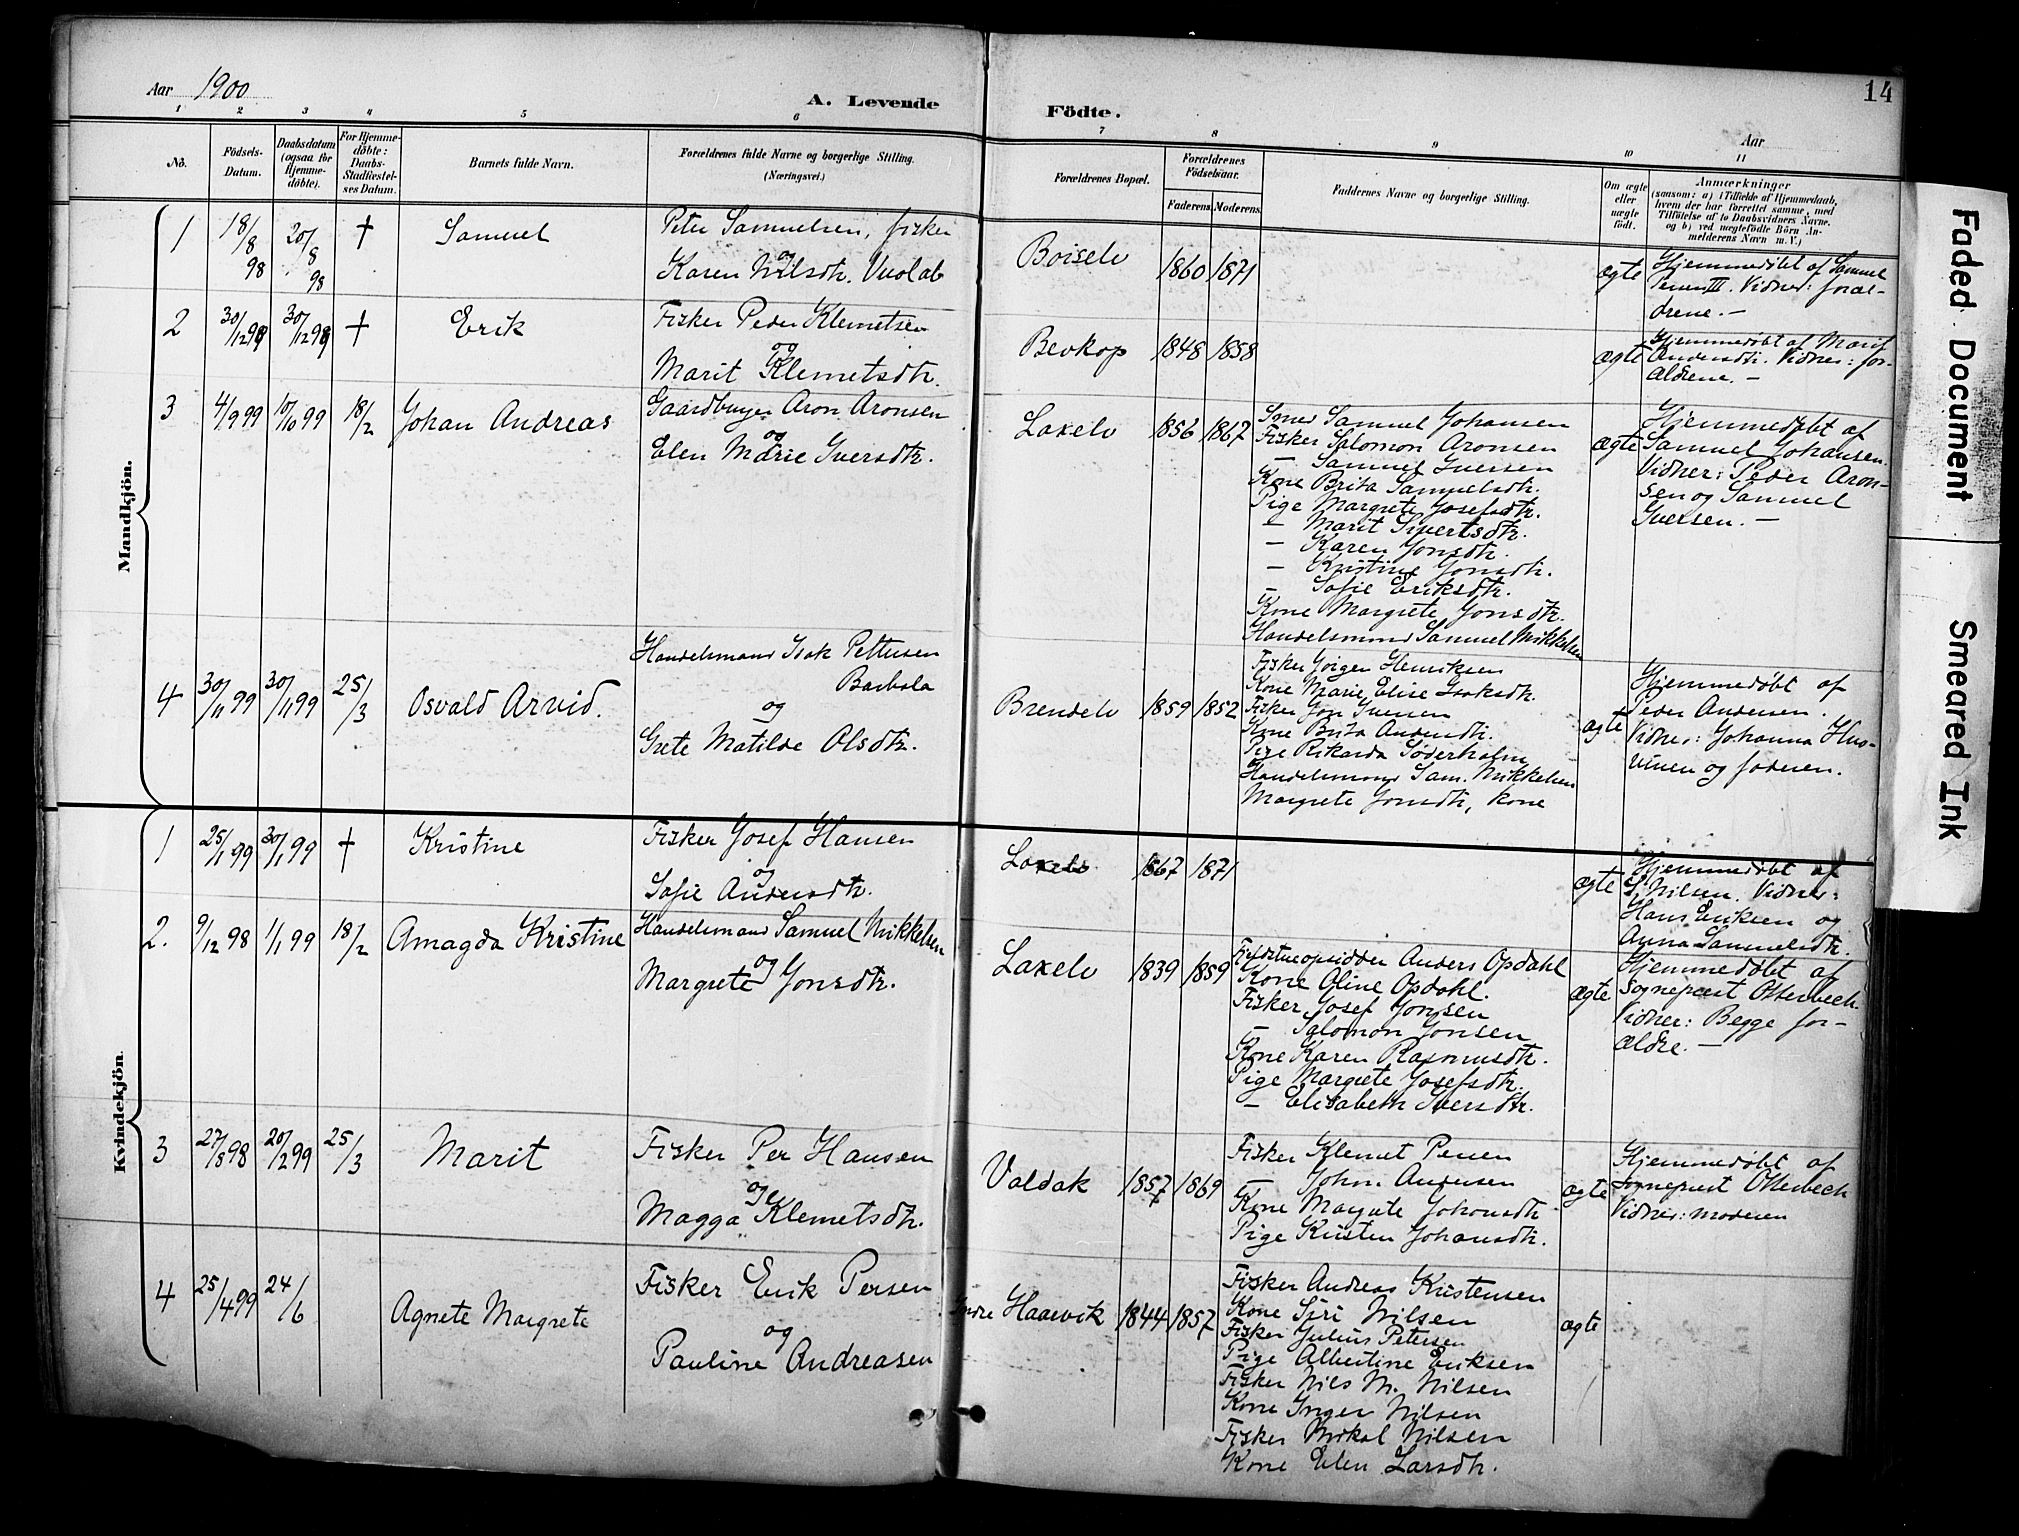 Aar 1900
A. Levende Födte.
14
Aar
1 2 3 4 5 6 7 8 9 10 11
No.
Födsels-Datum.
Daabsdatum (ogsaa for Hjemme-døbte).
For Hjemme-døbte: Daabs-Stadfæstel-ses Datum.
Barnets fulde Navn.
Forældrenes fulde Navne og borgerlige Stilling.
(Næringsvei.)
Forældrenes Bopæl.
Forældrenes Födselsaar.
Faderens. Moderens.
Faddernes Navne og borgerlige Stilling.
Om ægte eller uægte födt.
Anmærkninger
(saasom: a) i Tilfælde af Hjemmedaab,
hvem der har forrettet samme, med
Tilføielse af to Daabsvidners Navne,
og b) ved uægtefødte Börn An-
melderens Navn m. V.)
Mandkjön.
1 18/8 98 20/8 98 † Samuel
Peter Samuelsen, fisker
og
Karen Nilsdtr. Vuolab
Boiselv 1860 1871 ægte
Hjemmedøbt af Samuel
Persen III. Vidner: foræl-
drene. –
2 30/12 98 30/12 98 † Erik
Fisker Peder Klemetsen
og
Marit Klemetsdtr.
Bevkop 1848 1858 ægte
Hjemmedøbt af Marit
Andersdtr. Vidner: for-
ældrene. –
3 4/9 99 10/10 99 18/2 Johan Andreas
Gaardbruger Aron Aronsen
og
Elen Marie Iversdtr.
Laxelv 1856 1867
Samuel Johansen
Fisker Salomon Aronsen
– Samuel Iversen
Kone Brita Samuelsdtr.
Pige Margrete Josefsdtr.
– Marit Sivertsdtr.
– Karen Jonsdtr.
– Kristine Jonsdtr.
– Sofie Eriksdtr.
Kone Margrete Jonsdtr.
Handelsmand Samuel Mikkelsen
ægte
Hjemmedøbt af
Samuel Johansen.
Vidner: Peder Aron-
sen og Samuel
Iversen. –
4 30/11 99 30/11 99 25/3 Osvald Arvid.
Handelsmand Isak Pettersen
Barbala
og
Grete Matilde Olsdtr.
Brendelv 1859 1852
Fisker Jörgen Henriksen
Kone Marie Elise Isaksdtr.
Fisker Jon Iversen
Kone Brita Andersdtr.
Pige Rikarda Söderholm
Handelsmand Sam. Mikkelsen
Margrete Jonsdtr, kone
ægte
Hjemmedøbt af
Peder Andersen.
Vidner: Johanna Hus-
vinen og faderen.
Kvindekjön.
1 25/1 99 30/1 99 † Kristine
Fisker Josef Hansen
og
Sofie Andersdtr.
Laxelv 1867 1871 ægte
Hjemmedøbt af
S. Nilsen. Vidner:
Hans Eriksen og
Anna Samuelsdtr.
2. 9/12 98 1/1 99 18/2 Amagda Kristine
Handelsmand Samuel Mikkelsen
og
Margrete Jonsdtr.
Laxelv 1839 1859
Fjeldstueopsidder Anders Opdahl
Kone Oline Opdahl.
Fisker Josef Jonsen
– Salomon Jonsen
Kone Karen Rasmusdtr.
Pige Margrete Josefsdtr.
– Elisabeth Iversdtr.
ægte
Hjemmedøbt af
sogneprest Otterbech.
Vidner: Begge for-
ældre. –
3 27/8 98 20/2 99 25/3 Marit
Fisker Per Hansen
og
Magga Klemetsdtr.
Valdak 1857 1869
Fisker Klemet Persen
– John Andersen
Kone Margrete Johansdtr
Pige Kristen Johansdtr.
ægte
Hjemmedøbt af
sogneprest Otterbech
Vidner: moderen
4 25/4 99 24/6 Agnete Margrete
Fisker Erik Persen
og
Pauline Andreasen
Indre Haarvik 1844 1857
Fisker Andreas Kristensen
Kone Siri Nilsen
Fisker Julius Petersen
Pige Albertine Eriksen
Fisker Nils M. Nilsen
Kone Inger Nilsen
Fisker Mikal Nilsen
Kone Elen Larsdtr.
ægte
Faded Document Smeared Ink